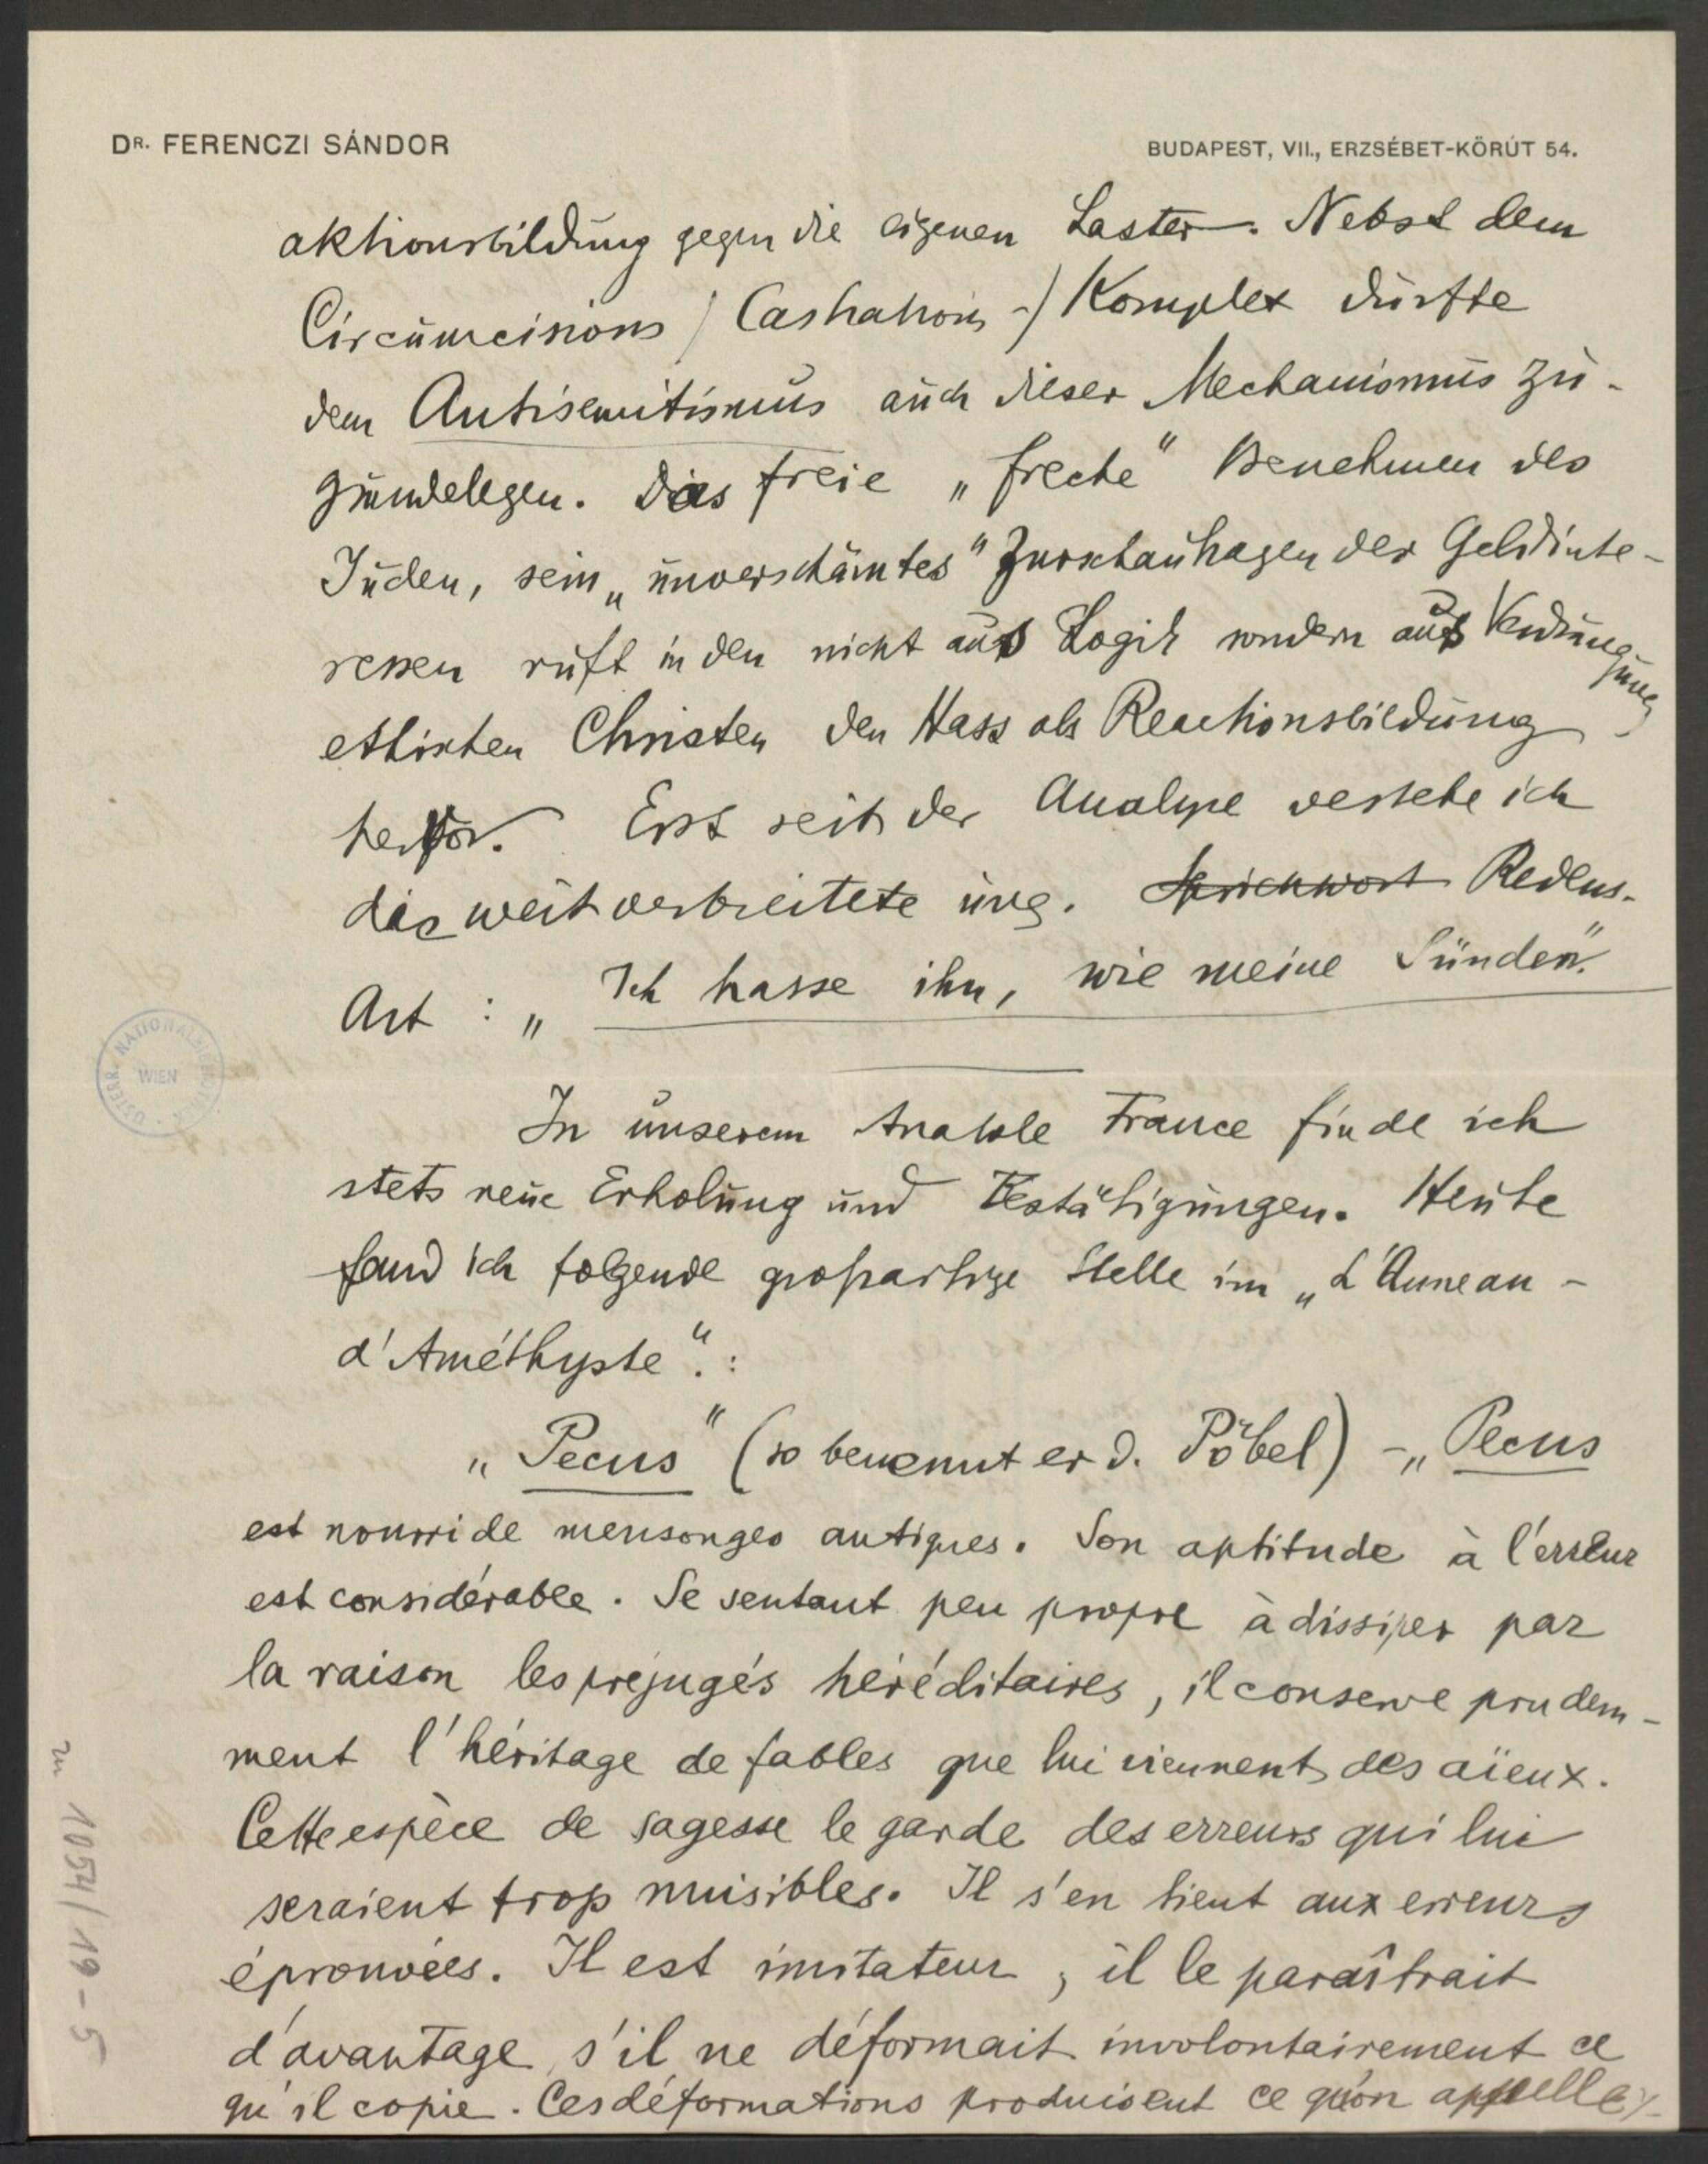 DR. FERENCZI SÁNDOR
BUDAPEST, VII., ERZSÉBET-KÖRÚT 54.
aktionsbildung gegen die eigenen Laster. Nebst dem
Circumcisions (Castrations-) Komplex dürfte
dem Antisemitismus auch dieser Mechanismus zu-
grundelegen. Das freie „freche" Benehmen des
Juden, sein „unverschämtes" Zurschautragen der Geldinte-
ressen ruft in den nicht aus Logik sondern aus Verdrängung
ethischen Christen den Hass als Reactionsbildung
hervor. Erst seit der Analyse verstehe ich
die weitverbreitete ung. Sprichwort Redens-
Art : „Ich hasse ihn, wie meine Sünden".
In unserem Anatole France finde ich
stets neue Erholung und Bestätigungen. Heute
fand ich folgende großartige Stelle im „L'Anneau-
d'Améthyste".:
„Pecus" (so benennt er d. Pöbel) – „Pecus
est nourri de mensonges antiques. Son aptitude à l'erreur
est considérable. Se sentant peu propre à dissiper par
la raison les préjugés héréditaires, il conserve prudem-
ment l'héritage de fables que lui viennent des aïeux.
Cette espèce de sagesse le garde des erreurs qui lui
seraient trop nuisibles. Il s'en tient aux erreurs
éprouvées. Il est imitateur, il le paraîtrait
d'avantage s'il ne déformait involontairement ce
qu'il copie. Ces déformations produisent ce qu'on appelle
ÖSTERR. NATIONALBIBLIOTHEK WIEN
zu 1054/19-5